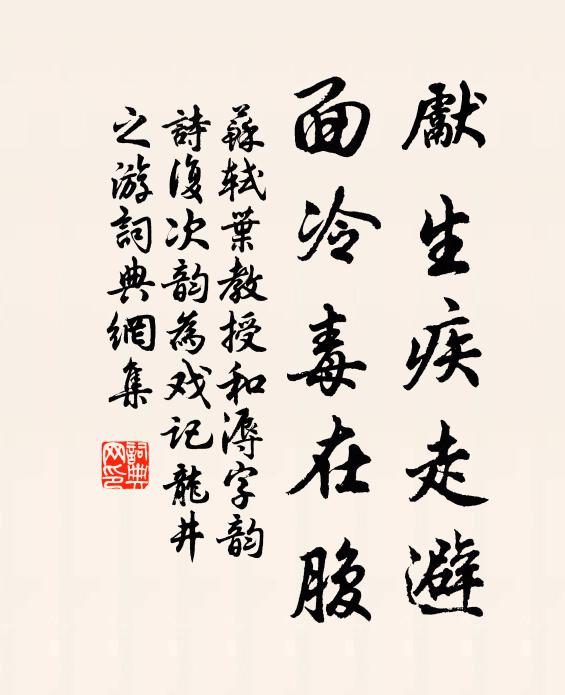 獻生疾走避
面冷毒在腹
蘇軾葉教授和溽字韵
詩復次韵為戏記龍井
之游詞典網集
詞典网印